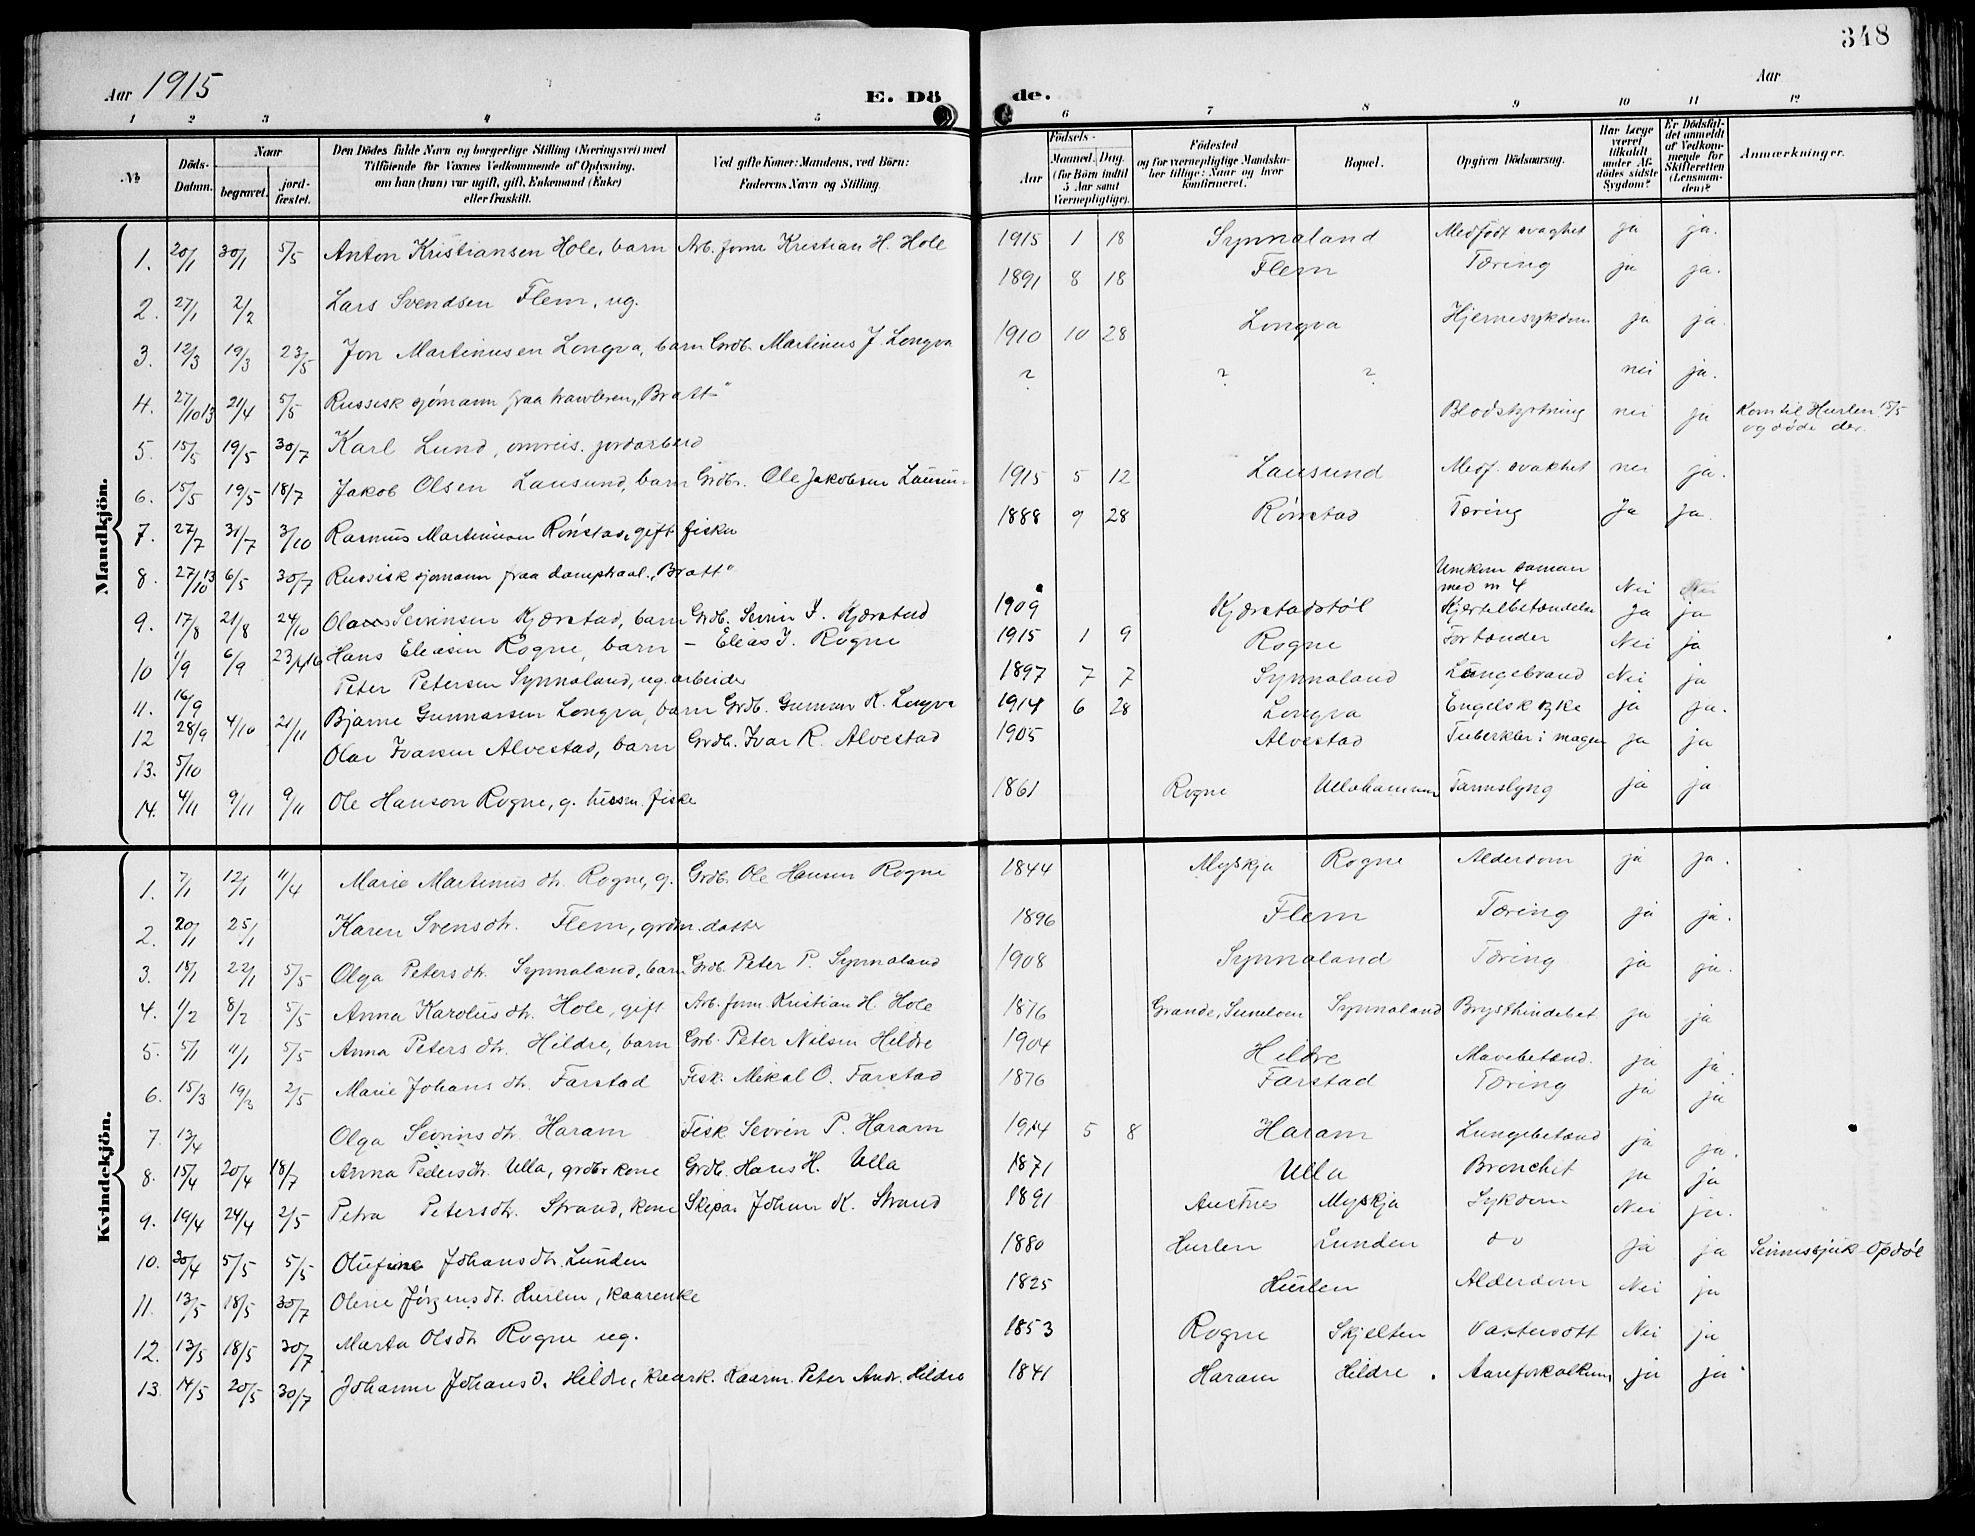 348
Aar 1915 E. Döde. Aar
1 2 3 4 5 6 7 8 9 10 11 12
№ Döds-Datum. Naar begravet. jordfæstet. Den Dödes fulde Navn og borgerlige Stilling (Næringsvei) med Tilföiende for Voxnes Vedkommende af Oplysning, om han (hun) var ugift, gift, Enkemand (Enke) eller fraskilt. Ved gifte Koner: Mandens, ved Börn: Faderens Navn og Stilling. Födsels- Aar Maaned. Dag. (for Börn indtil 5 Aar samt Værnepligtige). Födested og for værnepligtige Mandskaber tillige: Naar og hvor konfirmeret. Bopæl. Opgiven Dödsaarsag. Har Læge været tilkaldt under Afdödes sidste Sygdom? Er Dödsfaldet anmeldt af Vedkommende for Skifteretten (Lensmanden)? Anmærkninger.
Mandkjön.
1. 20/1 30/1 5/5 Anton Kristiansen Hole, barn Arb. form Kristian H. Hole 1915 1 18 Synnaland Medfødt svaghet ja ja.
2. 27/1 2/2 Lars Svendsen Flem, ug. 1891 8 18 Flem Tæring ja ja.
3. 12/3 19/3 23/5 Jon Martinusen Longva, barn Grdb. Martinus J. Longva 1910 10 28 Longva Hjernesykdom ja ja.
4. 27/10 13 21/4 5/5 Russisk sjømann fraa trawleren „Bratt" ? ? ? nei ja.
5. 15/5 19/5 30/7 Karl Lund, omreis. jordarbeid Blodstyrtning nei ja Kom til Hurlen 15/5 og døde der.
6. 15/5 19/5 18/7 Jakob Olsen Lausund, barn Grdbr. Ole Jakobsen Lausun- 1915 5 12 Lausund Medf. svakhet nei ja.
7. 27/7 31/7 3/10 Rasmus Martinusen Rønstad, gift fisker 1888 9 28 Rønstad Tæring Ja Ja.
8. 27/10 13 6/5 30/7 Russisk sjømann fraa dampskaal. „Bratt" Umkom saman med n 4 Nei
9. 17/8 21/8 24/10 Sevrinsen Kjærstad, barn Grdb. Sevrin I. Kjærstad 1909 Kjærstadstøl Kjærtelbetændelse Ja ja
10 1/9 6/9 23/1 16 Hans Eliasen Rogne, barn – Elias I. Rogne 1915 1 9 Rogne Fortænder Nei ja
11. 16/9 Peter Petersen Synnaland, ug. arbeider 1897 7 7 Synnaland Lungebrand Nei ja
12 28/9 4/10 21/11 Bjarne Gunnarsen Longva, barn Grdb. Gunnar K. Longva 1914 6 28 Longva Engelsk syke ja ja.
13. 5/10 Olav Ivarsen Alvestad, barn Grdb. Ivar R. Alvestad 1905 Alvestad Tuberkler i magen ja ja
14. 4/11 9/11 9/11 Ole Hanson Rogne, g. husm. fiske 1861 Rogne Ullahammer Tarmslyng ja ja
Kvindekjön.
1. 7/1 12/1 11/4 Marie Martinus dtr. Rogne, g. Grdb. Ole Hansen Rogne 1844 Myskja Rogne Alderdom ja ja.
2. 20/1 25/1 Karen Svensdtr. Flem, grdm. datter 1896 Flem Tæring ja ja.
3. 18/1 22/1 5/5 Olga Petersdtr. Synnaland, barn Grdb. Peter P. Synnaland 1908 Synnaland Tæring ja ja.
4. 1/2 8/2 5/5 Anna Karolusdtr. Hole, gift Arb. form. Kristian H. Hole 1876 Grande, Sunelven Synnaland Brysthindebet ja ja
5. 5/1 11/1 5/5 Anna Petersdtr. Hildre, barn Grb. Peter Nilsen Hildre 1904 Hildre Mavebetænd. ja ja.
6. 15/3 19/3 2/5 Marie Johansdtr. Farstad Fisk. Mikal O. Farstad 1876 Farstad Tæring ja ja
7. 13/4 Olga Sevrinsdtr. Haram Fisk Sevrin P. Haram 1914 5 8 Haram Lungebetænd ja ja.
8. 15/4 20/4 18/7 Anna Pedersdtr. Ulla, grdbr kone Grdb. Hans H. Ulla 1871 Ulla Bronchit ja ja
9. 19/4 24/4 2/5 Petra Petersdtr. Strand, kone Skipar Johan K. Strand 1891 Austnes Myskja Sykdom Nei ja.
10. 30/4 5/5 5/5 Olufine Johansdtr. Lunden 1880 Hurlen Lunden do ja ja Sinnssjuk-Opdøl
11. 13/5 18/5 30/7 Oline Jørgensdt. Hurlen, kaarenke 1825 Hurlen Alderdom Nei ja
12. 13/5 18/5 30/7 Marta Olsdtr Rogne ug. 1853 Rogne Skjelten Vattersott Nei ja
13. 14/5 20/5 30/7 Johanne Johansd. Hildre, kaark. Kaarm. Peter Andr. Hildre 1841 Haram Hildre Aareforkalkning ja ja